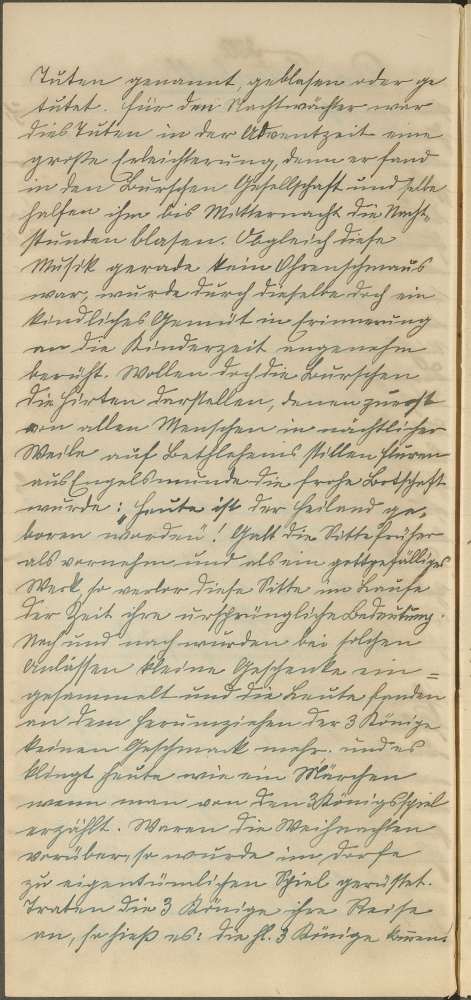 Tuten genannt, geblasen oder ge
tutet. Für den Nachtwächter war
dies Tuten in der Adventzeit eine
große Erleichterung, denn er fand
in den Burschen Gesellschaft und selbe
halfen ihm bis Mitternacht die Nacht-
stunden blasen. Obgleich diese
Musik gerade kein Ohrenschmaus
war, wurde durch dieselbe doch ein
kindliches Gemüt in Erinnerung
an die Kinderzeit angenehm
berührt. Wollen doch die Burschen
die Hirten darstellen, denen zuerst
von allen Menschen in nächtlicher
Weile auf Bethlehems stillen Fluren
aus Engelsmunde die frohe Botschaft
wurde: "Heute ist der Heiland ge-
boren worden"! Galt die Sitte früher
als vornehm und als ein gottgefälliges
Werk, so verlor diese Sitte im Laufe
der Zeit ihre ursprüngliche Bedeutung.
Nach und nach wurden bei solchen
Anlässen kleine Geschenke ein=
gesammelt und die Leute fanden
an dem Herumziehen der 3 Könige
keinen Geschmack mehr. und es
klingt heute wie ein Märchen
wenn man von den 3 Königsspiel
erzählt. Waren die Weihnachten
vorüber, so wurde im Dorfe
zu eigentümlichen Spiel gerüstet.
Traten die 3 Könige ihre Reise
an, so hieß es: die hl. 3 Könige kommen